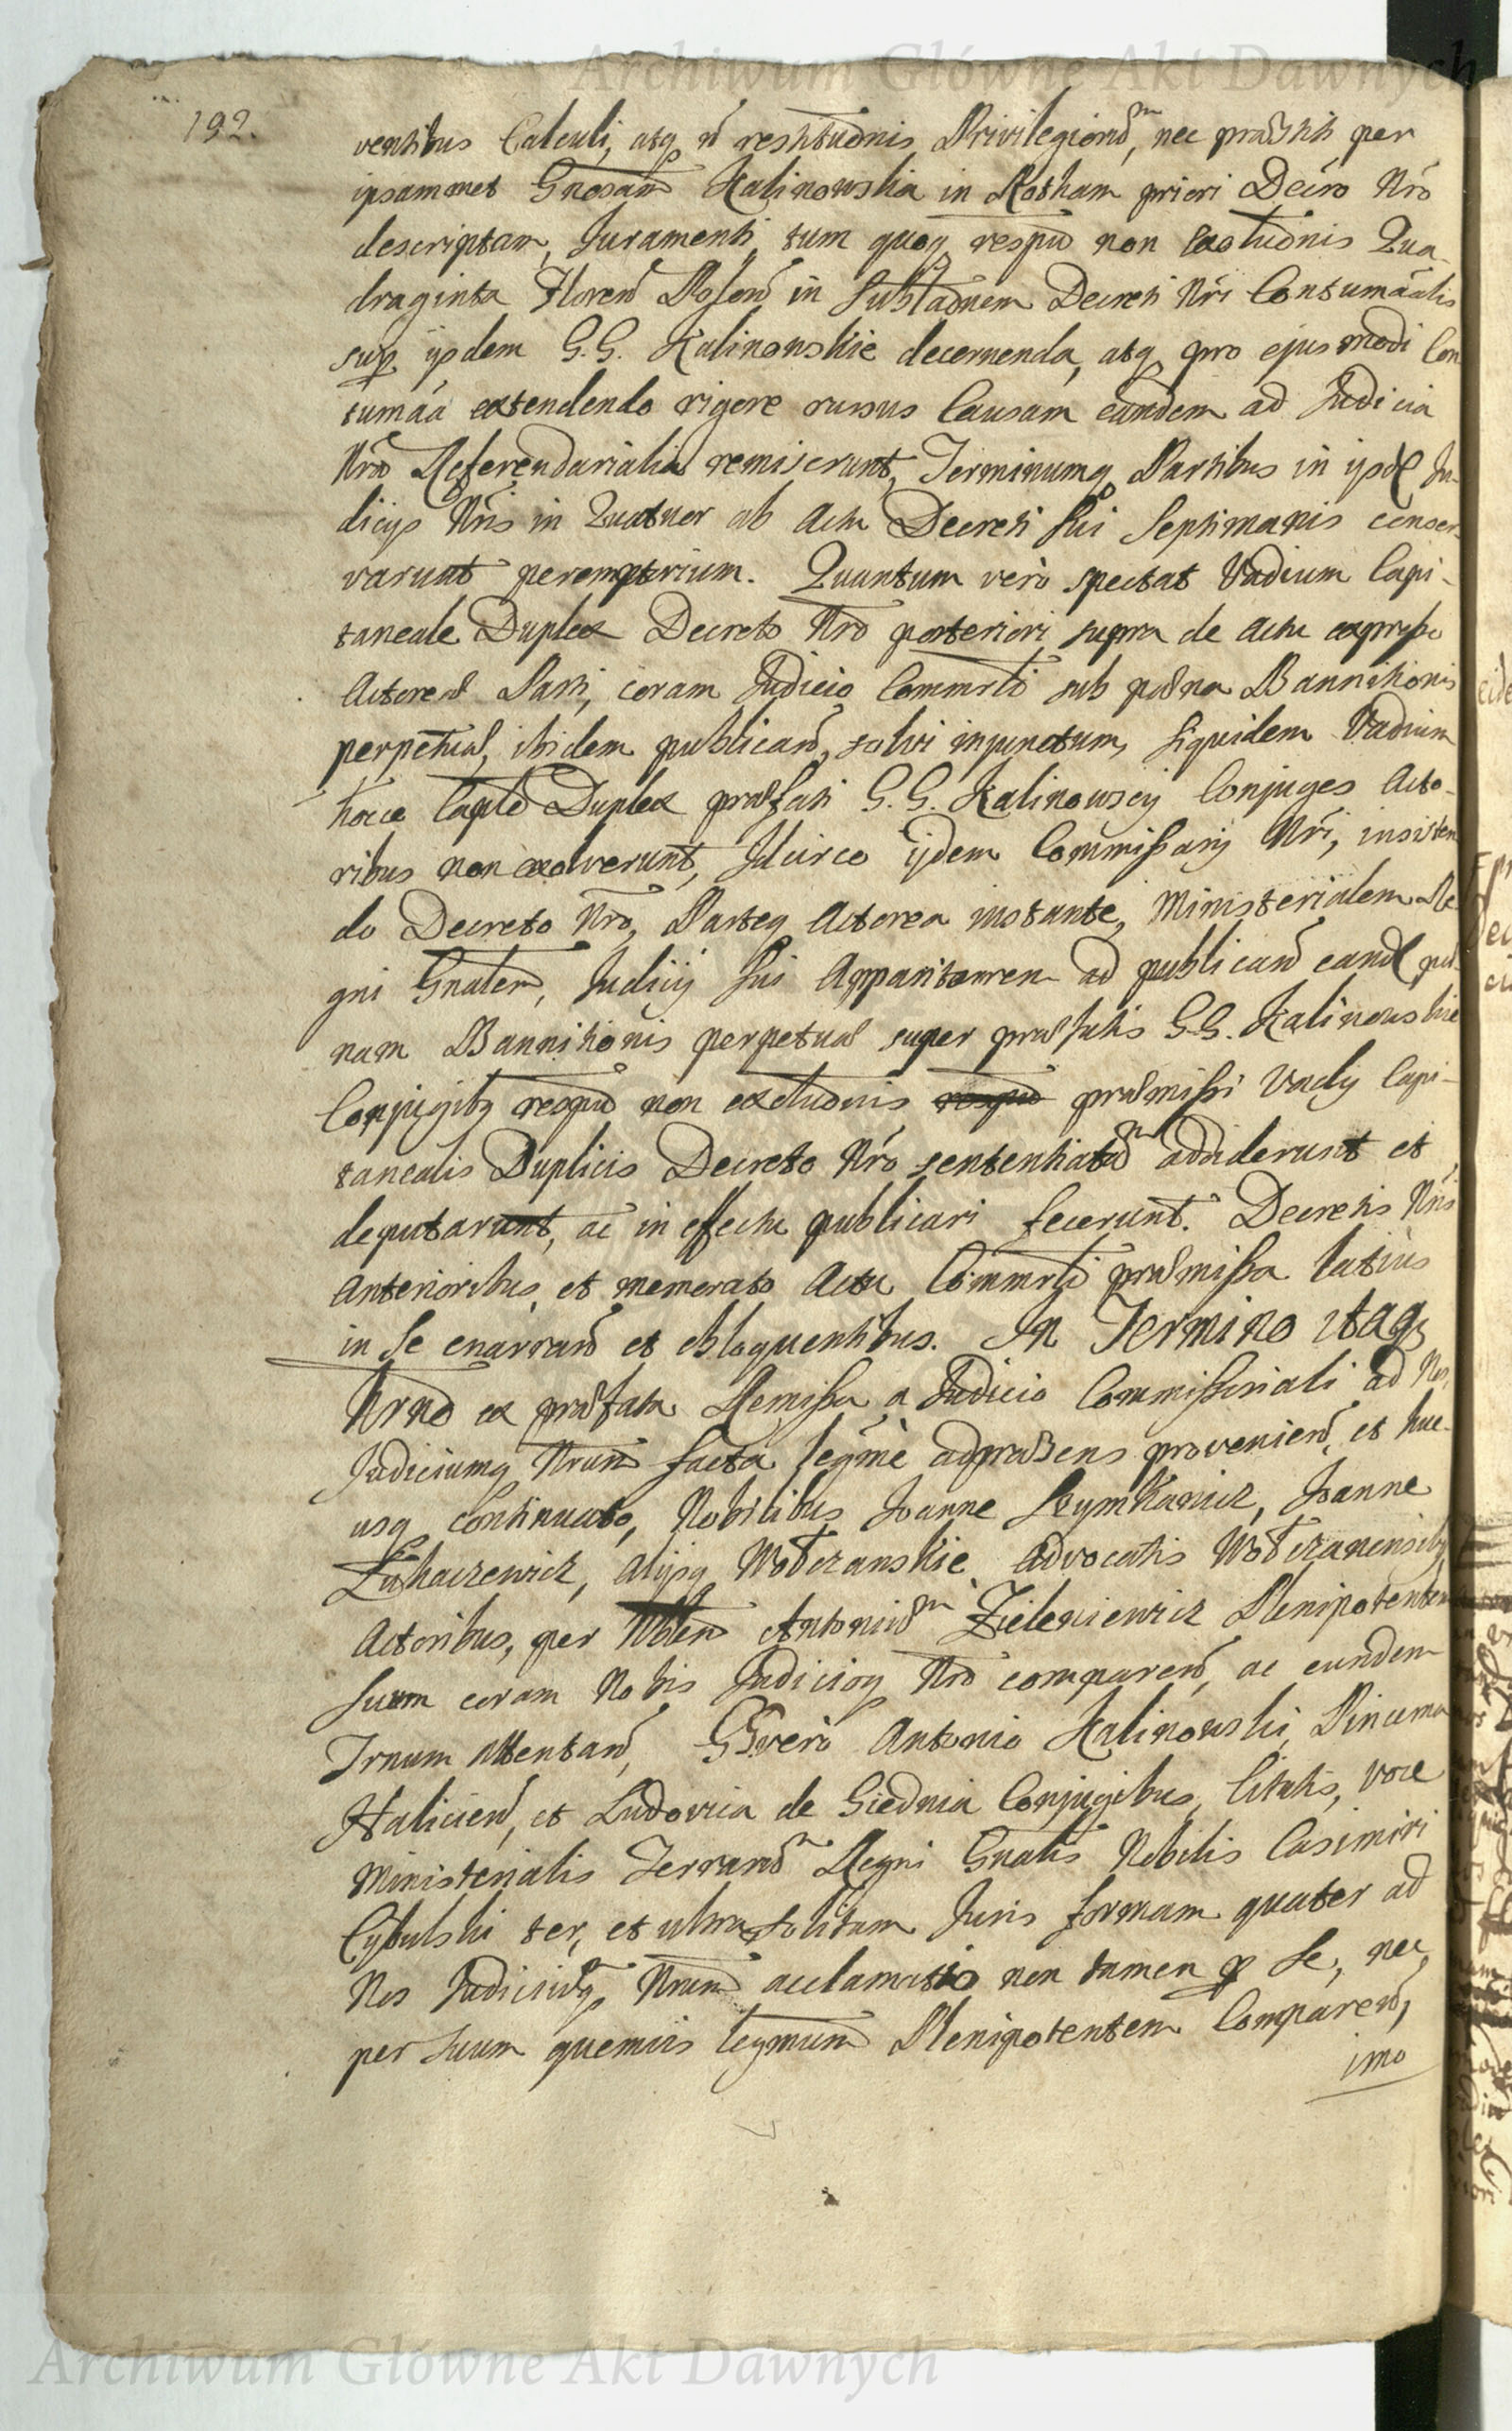 Archiwum Główne Akt Dawnych
192.
ventibus Calculi, atq₃ restitu͠onis Privilegior͠um, nec præstiti per
ipsammet Gnosam Kalinowska in Rotham priori Decr̃o Nr̃o
descriptam, Juramenti, tum quoq₃ respũ non solu͠onis Qua-
draginta Floren̄ Polon̄ in sublã͠onem Decreti Nr̃i Contumãcialis
sup̱ ijsdem G.G. Kalinowskie decernenda, atq₃ pro ejusmodi Con
tumã́a extendendo rigore rursus Causam eandem ad Judicia
Nr̃a Referendarialia remiserunt, Terminumq₃ Partibus in ijsd̃ Ju-
dicijs Nr̃is in Quatuor ab Actu Decreti sui Septimanis conser-
varunt peremptorium. Quantum verò spectat Vadium Capi-
taneale Duplex Decreto Nr̃o posteriori supra de Actu expresso
Actoreæ Parti, coram Judicio Commr̃li sub pœna Bannitionis
perpetuæ, ibidem publicañ, solvi injunctum, siquidem Vadium
hocce Capl̃e Duplex præfati G.G. Kalinowscy Conjuges Acto-
ribus non exolverunt, Idcirco ijdem Commissarij Nr̃i, insisten
do Decreto Nr̃o, Parteq₃ Actorea instante, Ministerialem Re-
gni Gn̄alem, Judicij sui Apparitorem ad publicañ eand̃ pœ-
nam Bannitionis perpetuæ super præfatis G.G. Kalinowskie
Conjugib₃ respũ non exolu͠onis præmissi Vadij Capi-
tanealis Duplicis Decreto Nr̃o sententiatũm addiderunt et
deputarunt, ac in effectu publicari fecerunt. Decretis Nr̃is
Anterioribus, et memorato Actu Commr̃li præmissa latius
in se enarrañ et obloquentibus. In Termino itaq₃
Hrno ex præfata Remissa a Judicio Commissoriali ad Nos,
Judiciumq₃ Nrum facta legm̃e adpræsens provenieñ, et huc-
usq₃ continuato, Nobilibus Joanne Szymkowicz, Joanne
Łukaszewicz, alijsq₃ Woł́czanskie Advocatis Woł́czanensib₃
Actoribus, per Nblem Antoniũm Zieleniewicz Plenipotentem
suum coram Nobis Judicioq₃ Nr̃o compareñ, ac eundem
Trnum attentañ, GG. verò Antonio Kalinowski, Pincerna
Halicień, et Ludovica de Giednia Conjugibus, Citatis, voce
Ministerialis Terrarũm Regni Gn̄alis Nobilis Casimiri
Cybulski ter, et ultra solitam Juris formam quater ad
Nos Judiciũq₃ Nrum acclamatis non tamen p̱ se, nec
per suum quemvis legm̃um Plenipotentem Compareñ,
imo
Archiwum Główne Akt Dawnych